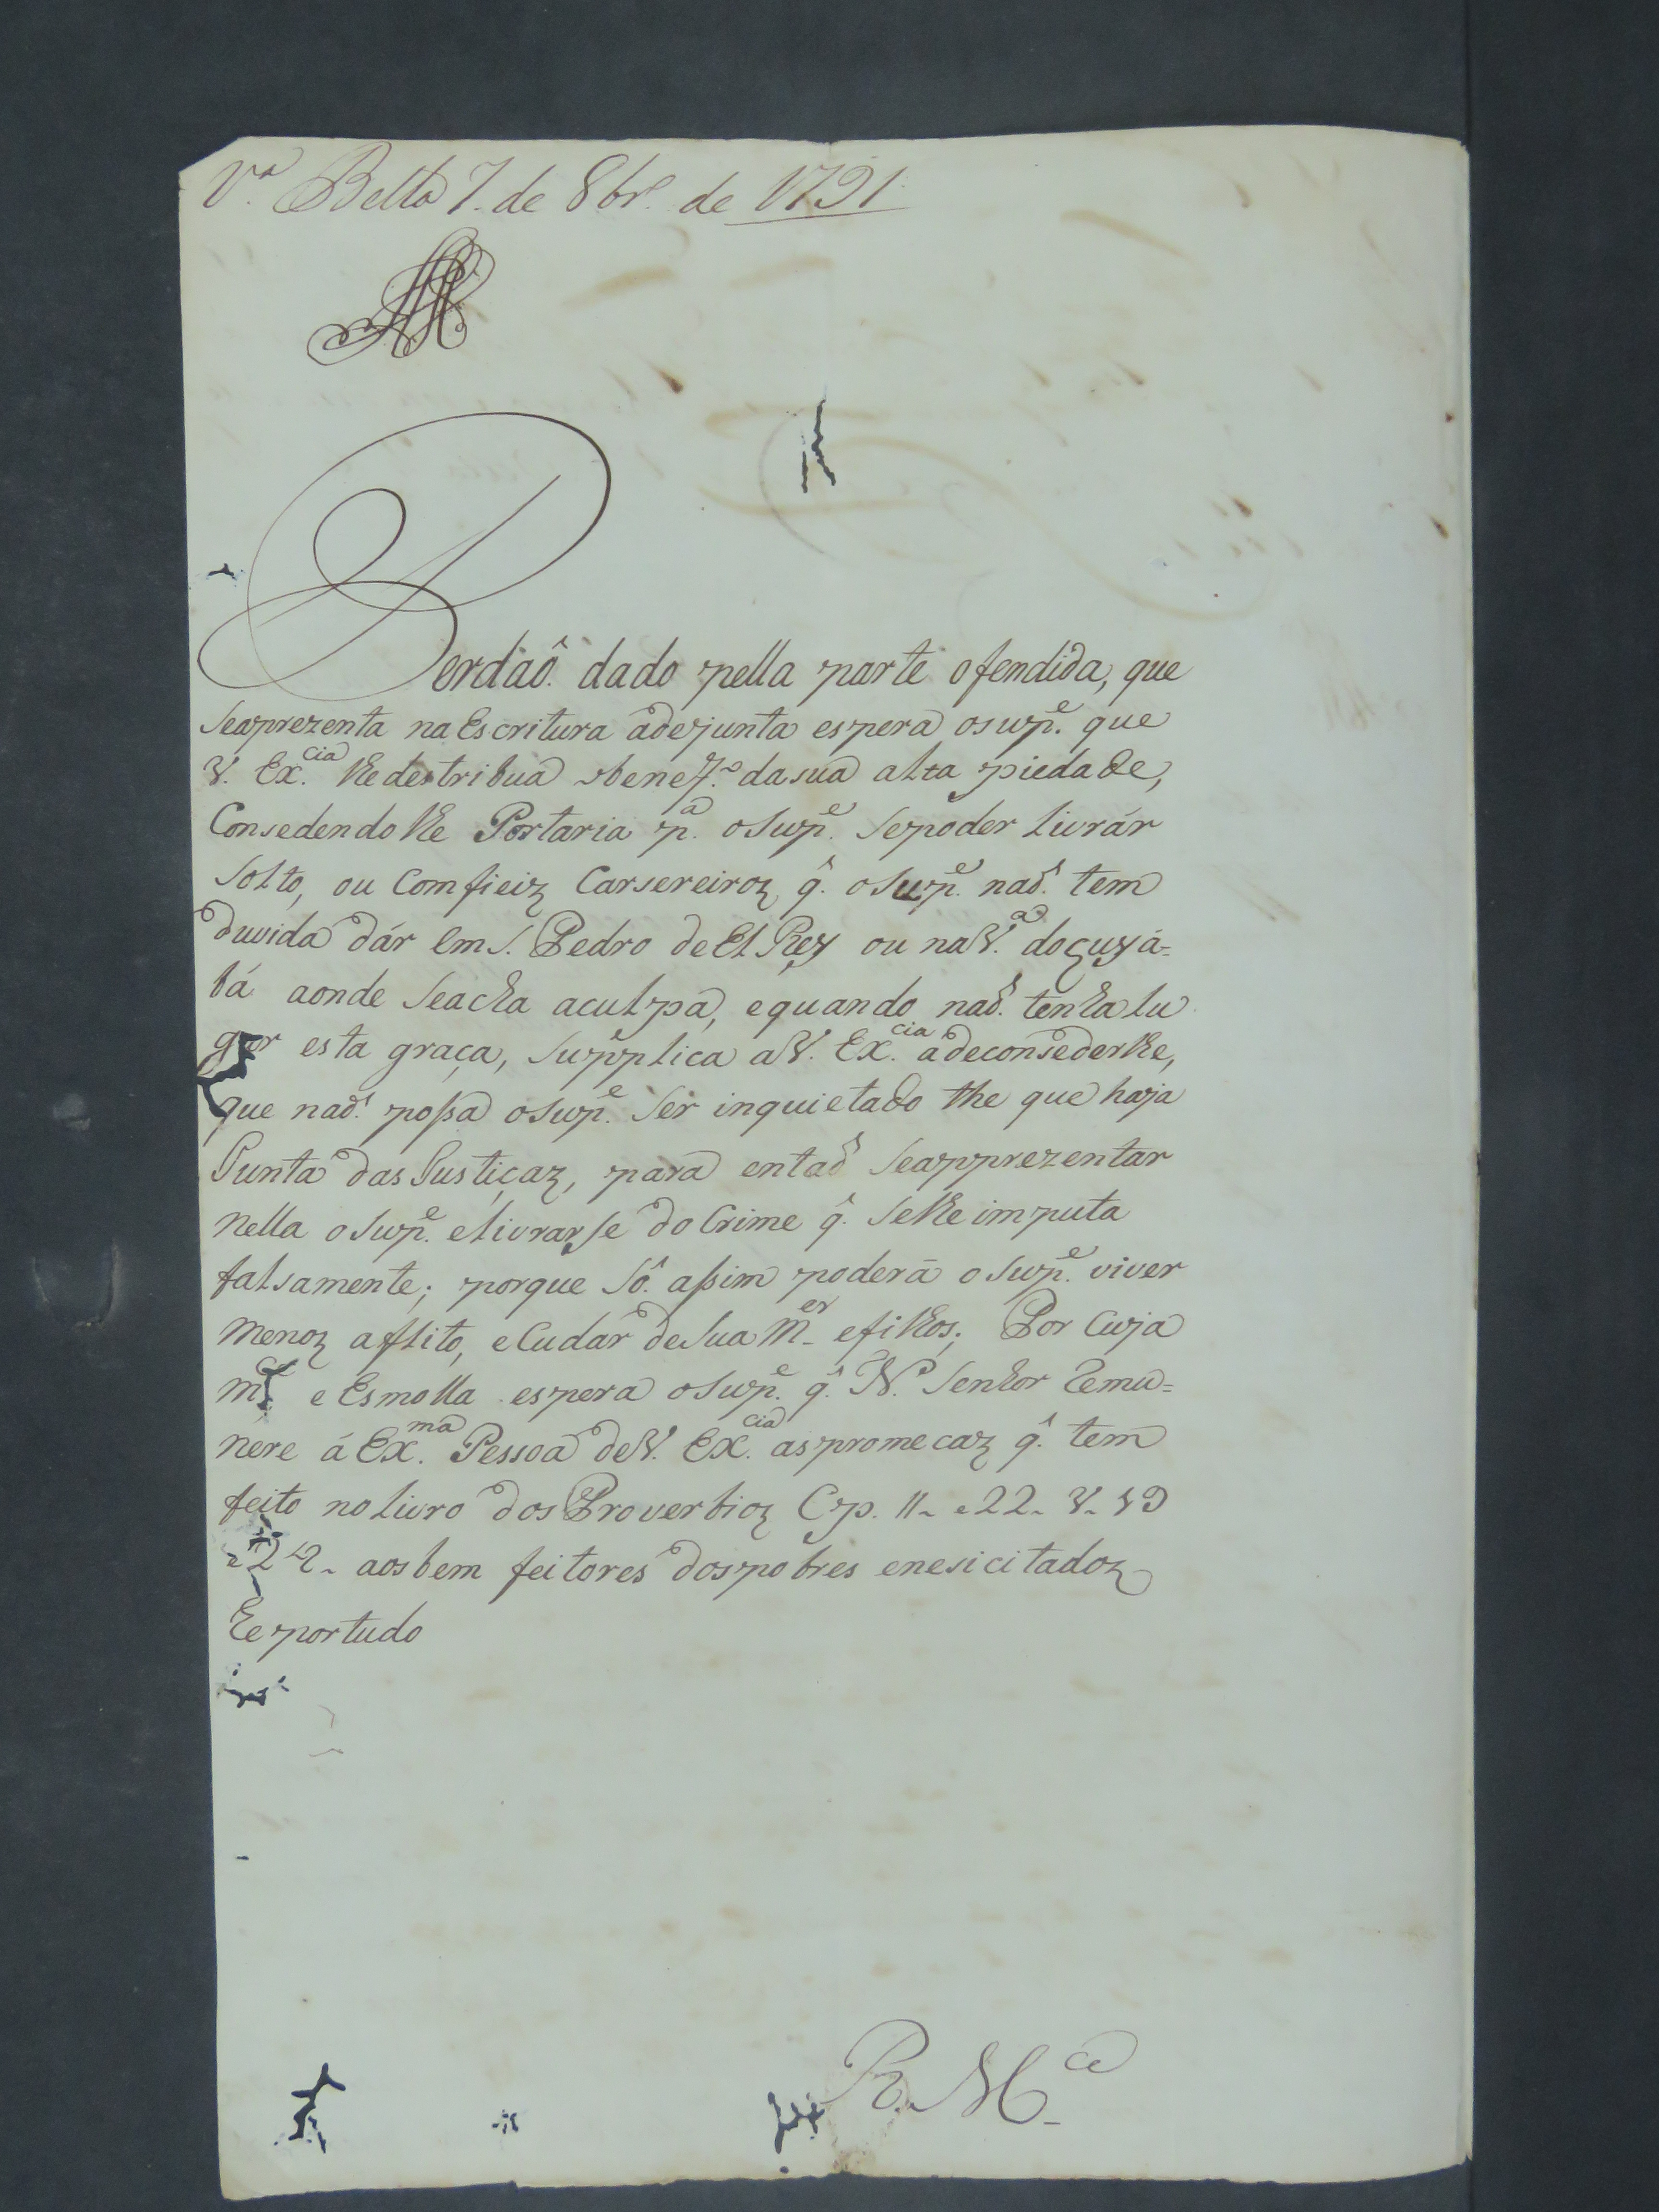 V.ª Bella 7. de 8br.º de 1791
Perdaõ dado pella parte ofendida, que
Seaprezenta na Escritura adejunta espera o sup.e que
V. Ex.cia lhe destribua obenef.º da sua alta piedade,
Consedendo lhe Portaria p.a o Sup.e Sepoder Livrár
Solto, ou Comfieiz Carsereiroz q̂. o Sup.e naõ. tem
duvida dár em S. Pedro de El Rey ou na V.a do Cuyá=
bá aonde Seacha aculpa, equando naõ. tenha lu
gar esta graça, Supplica a V. Ex.cia adeconsederlhe,
que naõ. possa o Sup.e Ser inquietado the que haja
Junta das Justiçaz, para entaõ Seapprezentar
nella o Sup.e elivrarse do Crime q̂. Selhe imputa
falsamente; porque Sô. assim poderá o Sup.e viver
menoz aflito, eCudár deSua M.er efilhos; Por Cuja
m.e e Esmolla espera o Sup.e q̂. N. Senhor Remu=
nere á Ex.ma Pessoa de V. Ex.cia as promecaz q̂. tem
feito no Livro dos Proverbioz Cp. 11. e 22. V. 19
aos bem feitores dos pobres enesicitadoz
Eeportudo
R. M.ce